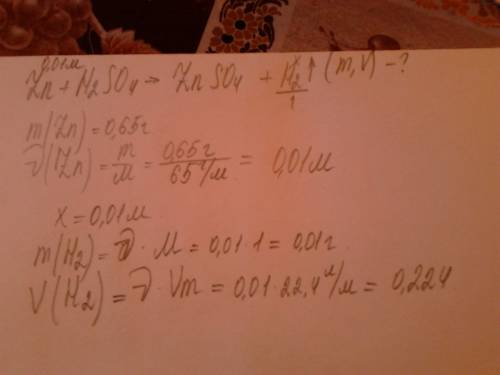 0,01м x
Zn + H2SO4 → ZnSO4 + H2↑ (m, V) - ?
1
m(Zn) = 0,65г
ν(Zn) = m/M = 0,65г / 65г/м = 0,01м
x = 0,01м
m(H2) = ν · M = 0,01 · 1 = 0,01г
V(H2) = ν · Vm = 0,01 · 22,4 л/м = 0,224